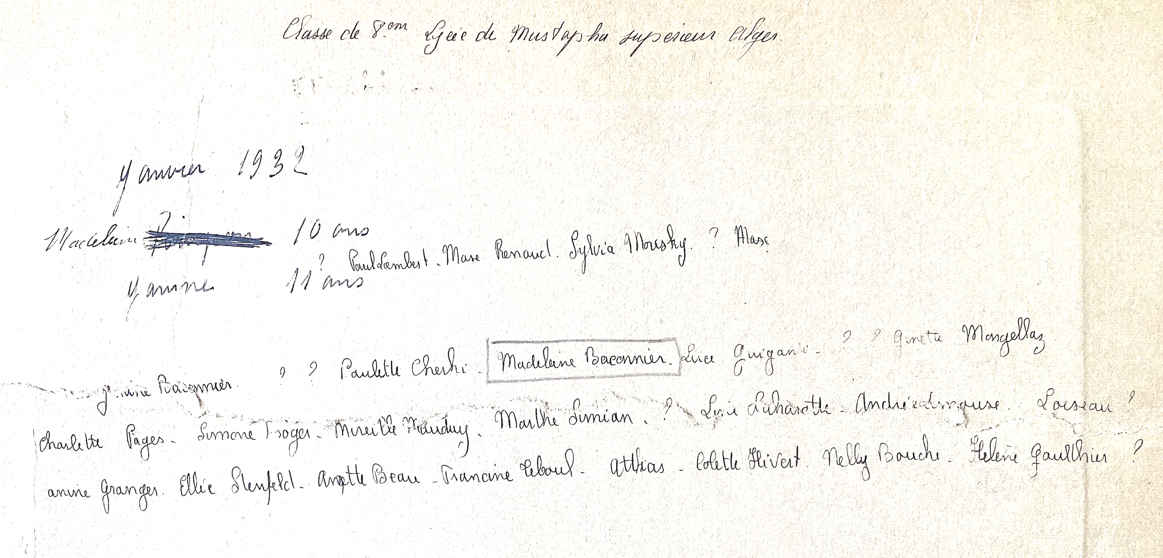 Classe de 8.em Lycée de Mustapha supérieur Alger.
Janvier 1932
Madeleine 10 ans
? Paul Lambert. Marc Renaud. Sylvia Mousky. ? Marc
Janine 11 ans
Janine Baconnier. ? ? Paulette Cherki. Madeleine Baconnier. Luce Guigani. ? ? Ginette Mongellaz
Charlette Pages. Simone Troger. Mireille Mauduy. Marthe Simian. ? Andrée Limouse. Loiseau ?
anine Granges. Ellie Stenfeld. Anette Beau. Francine Reboul. Atthias. Colette Hivert. Nelly Bouche. Helene Gaulthier ?